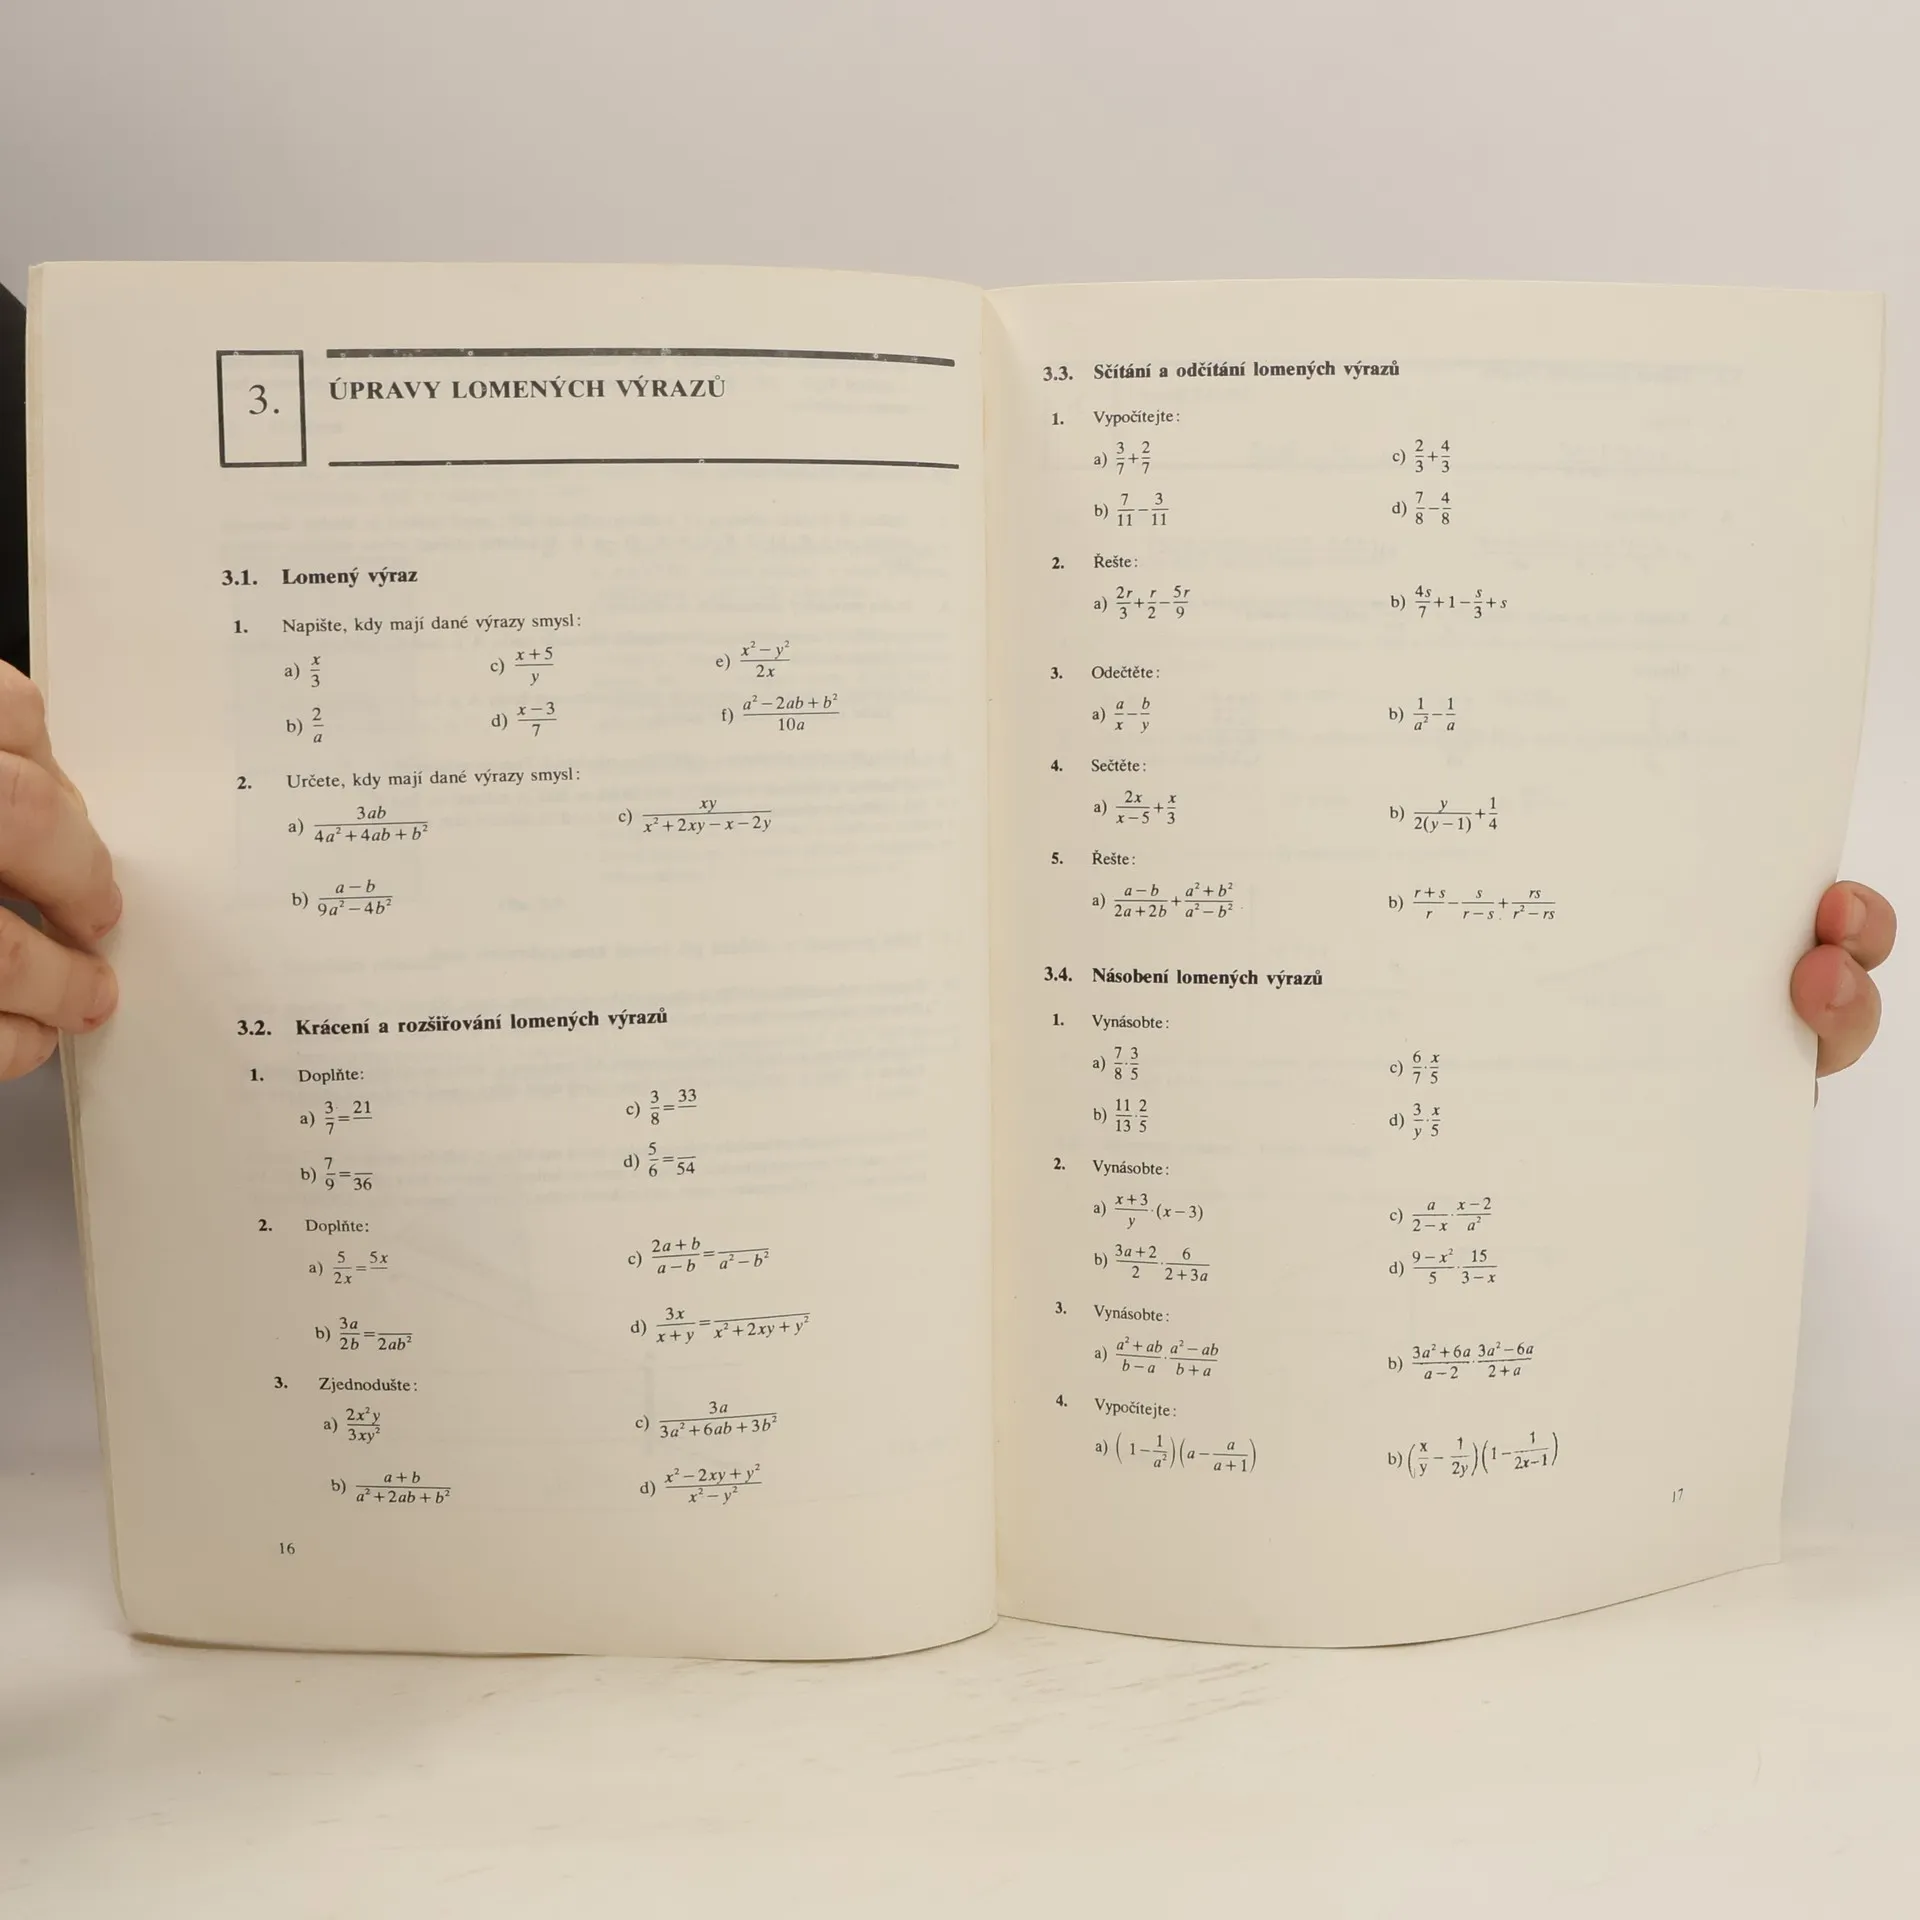 3.
ÚPRAVY LOMENÝCH VÝRAZŮ
3.1. Lomený výraz
1. Napište, kdy mají dané výrazy smysl:
a) x/3 c) (x+5)/y e) (x²−y²)/2x
b) 2/a d) (x−3)/7 f) (a²−2ab+b²)/10a
2. Určete, kdy mají dané výrazy smysl:
a) 3ab/(4a²+4ab+b²) c) xy/(x²+2xy−x−2y)
b) (a−b)/(9a²−4b²)
3.2. Krácení a rozšiřování lomených výrazů
1. Doplňte:
a) 3/7 = 21/ c) 3/8 = 33/
b) 7/9 = /36 d) 5/6 = /54
2. Doplňte:
a) 5/2x = 5x/ c) (2a+b)/(a−b) = /(a²−b²)
b) 3a/2b = /2ab² d) 3x/(x+y) = /(x²+2xy+y²)
3. Zjednodušte:
a) 2x²y/3xy² c) 3a/(3a²+6ab+3b²)
b) (a+b)/(a²+2ab+b²) d) (x²−2xy+y²)/(x²−y²)
16
3.3. Sčítání a odčítání lomených výrazů
1. Vypočítejte:
a) 3/7+2/7 c) 2/3+4/3
b) 7/11−3/11 d) 7/8−4/8
2. Řešte:
a) 2r/3+r/2−5r/9 b) 4s/7+1−s/3+s
3. Odečtěte:
a) a/x−b/y b) 1/a²−1/a
4. Sečtěte:
a) 2x/(x−5)+x/3 b) y/2(y−1)+1/4
5. Řešte:
a) (a−b)/(2a+2b)+(a²+b²)/(a²−b²) b) (r+s)/r−s/(r−s)+rs/(r²−rs)
3.4. Násobení lomených výrazů
1. Vynásobte:
a) 7/8·3/5 c) 6/7·x/5
b) 11/13·2/5 d) 3/y·x/5
2. Vynásobte:
a) (x+3)/y·(x−3) c) a/(2−x)·(x−2)/a²
b) (3a+2)/2·6/(2+3a) d) (9−x²)/5·15/(3−x)
3. Vynásobte:
a) (a²+ab)/(b−a)·(a²−ab)/(b+a) b) (3a²+6a)/(a−2)·(3a²−6a)/(2+a)
4. Vypočítejte:
a) (1−1/a²)(a−a/(a+1)) b) (x/y−1/2y)(1−1/(2x−1))
17